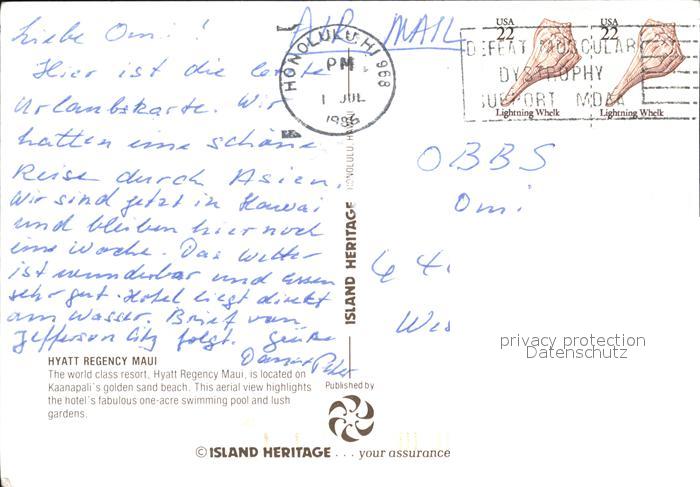 Liebe Omi!
Hier ist die letzte
Urlaubskarte. Wir
hatten eine schöne
Reise durch Asien.
Wir sind jetzt in Hawai
und bleiben hier noch
eine Woche. Das Wetter
ist wunderbar und Essen
sehr gut. Hotel liegt direkt
am Wasser. Brief von
Jefferson City folgt. Grüße
Peter
HYATT REGENCY MAUI
The world class resort, Hyatt Regency Maui, is located on
Kaanapali's golden sand beach. This aerial view highlights
the hotel's fabulous one-acre swimming pool and lush
gardens.
AIR MAIL
HONOLULU, HI 968
PM
1 JUL
1986
USA
22
Lightning Whelk
USA
22
Lightning Whelk
DEFEAT MUSCULAR
DYSTROPHY
SUPPORT MDAA
ISLAND HERITAGE HONOLULU, HA
OBBS
Omi
64
privacy protection
Datenschutz
Published by
©ISLAND HERITAGE . . . your assurance